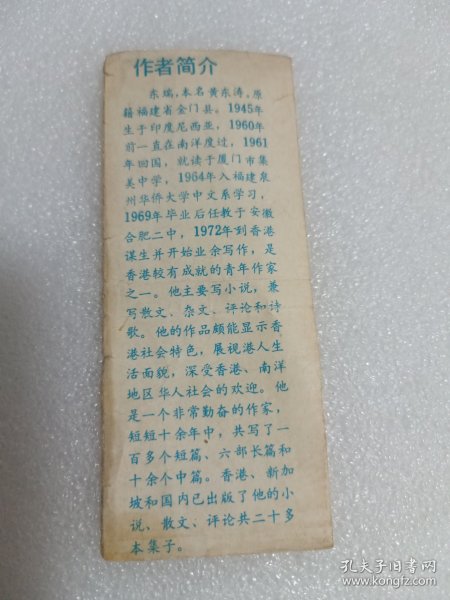 作者简介
东瑞,本名黄东涛。原
籍福建省金门县。1945年
生于印度尼西亚,1960年
前一直在南洋度过,1961
年回国,就读于厦门市集
美中学,1964年入福建泉
州华侨大学中文系学习,
1969年毕业后任教于安徽
合肥二中,1972年到香港
谋生并开始业余写作,是
香港较有成就的青年作家
之一。他主要写小说,兼
写散文、杂文、评论和诗
歌。他的作品颇能显示香
港社会特色,展视港人生
活面貌,深受香港、南洋
地区华人社会的欢迎。他
是一个非常勤奋的作家,
短短十余年中,共写了一
百多个短篇、六部长篇和
十余个中篇。香港、新加
坡和国内已出版了他的小
说、散文、评论共二十多
本集子。
孔夫子旧书网
www.kongfz.com